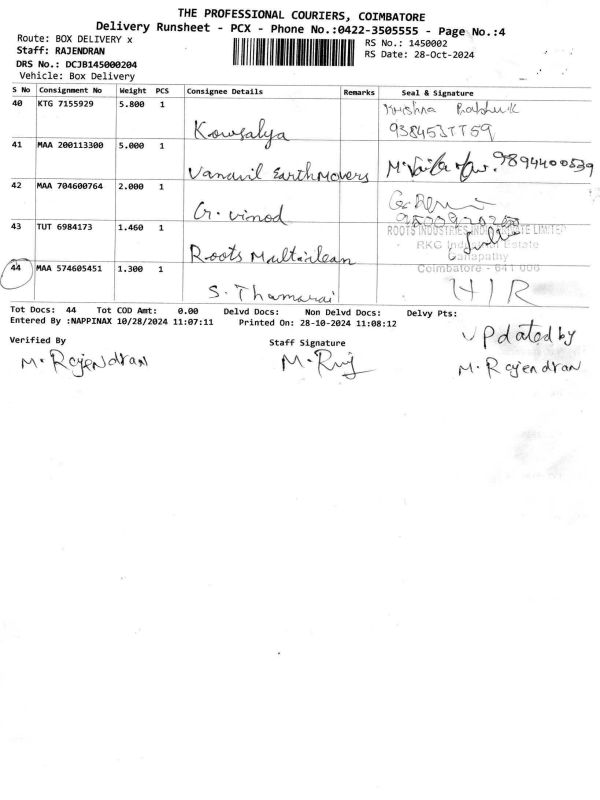 THE PROFESSIONAL COURIERS, COIMBATORE
Delivery Runsheet - PCX - Phone No.:0422-3505555 - Page No.:4
Route: BOX DELIVERY x
RS No.: 1450002
Staff: RAJENDRAN
RS Date: 28-Oct-2024
DRS No.: DCJB145000204
Vehicle: Box Delivery
S No Consignment No Weight PCS Consignee Details Remarks Seal & Signature
40 KTG 7155929 5.800 1
Kowsalya
41 MAA 200113300 5.000 1
Vanavil Earthmovers 9894400539
42 MAA 704600764 2.000 1
G. vinod
43 TUT 6984173 1.460 1
ROOTS INDUSTRIES INDIA PRIVATE LIMITED
RKG Industrial Estate
Ganapathy
Roots Multiclean
44 MAA 574605451 1.300 1
Coimbatore - 641 006
S. Thamarai
Tot Docs: 44 Tot COD Amt: 0.00 Delvd Docs: Non Delvd Docs: Delvy Pts:
Entered By :NAPPINAX 10/28/2024 11:07:11 Printed On: 28-10-2024 11:08:12
Verified By Staff Signature
Updated by
M. Rajendran M. Raj M. Rajendran